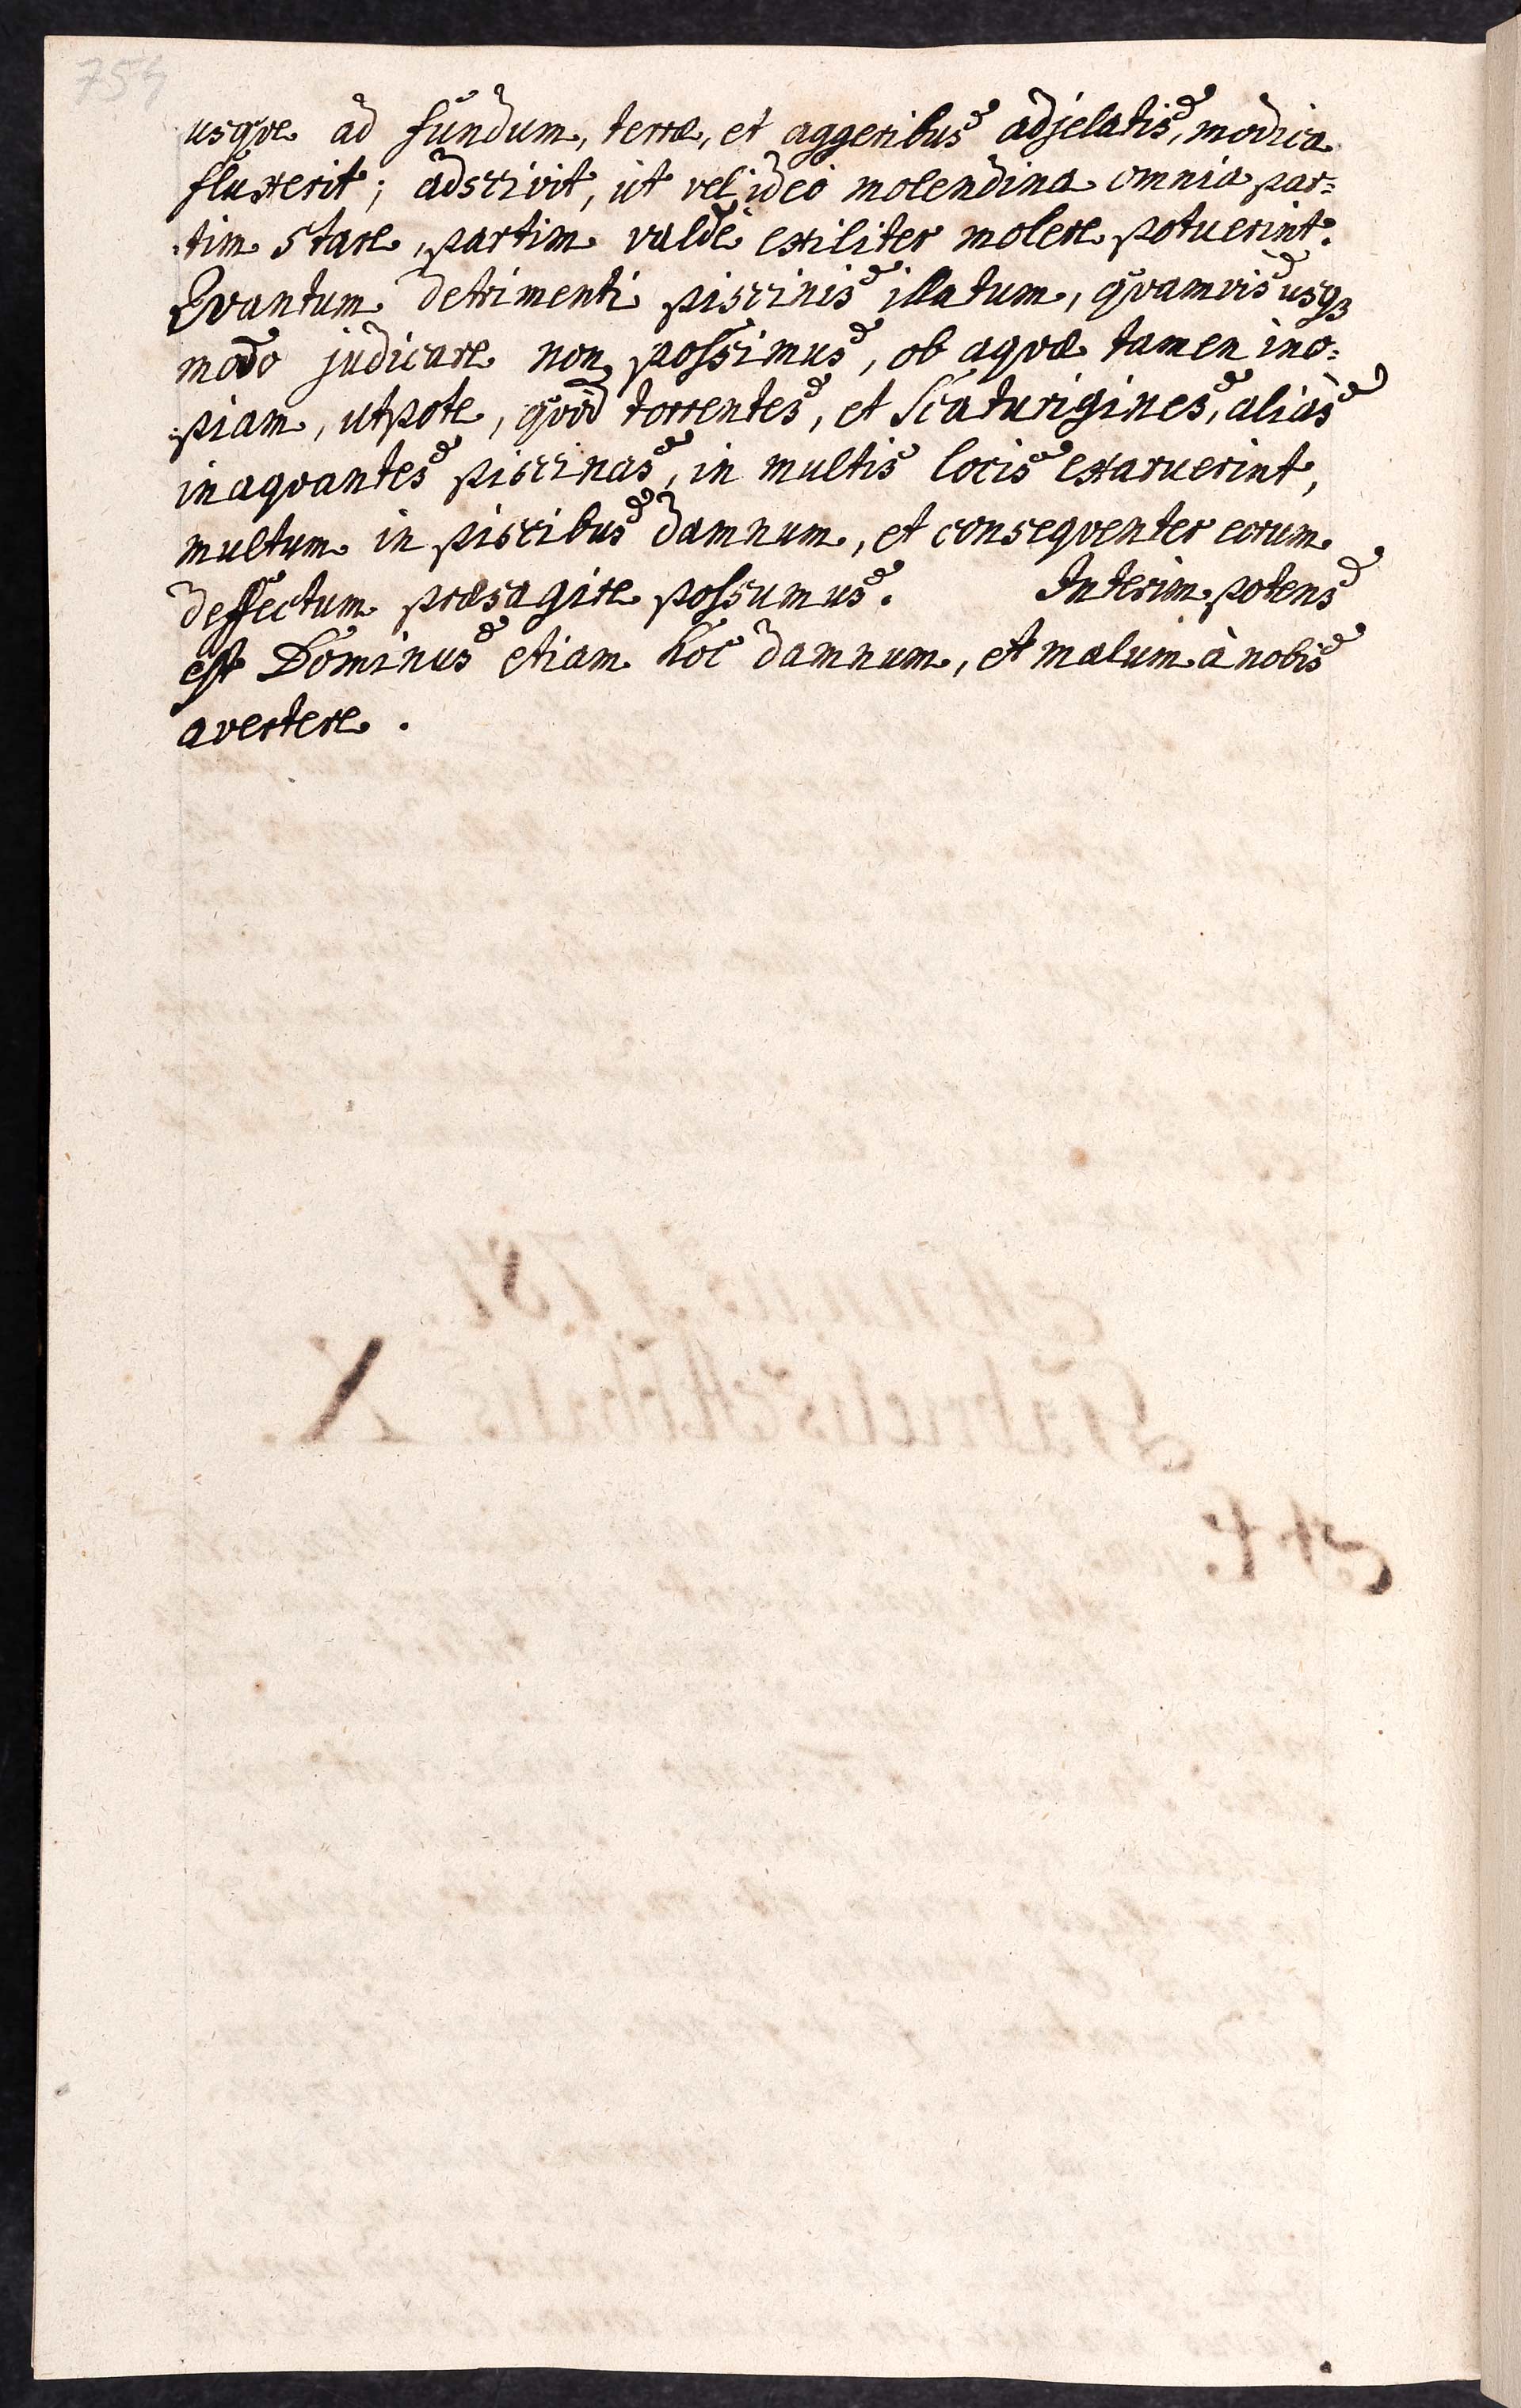 754
usqve ad fundum, terræ, et aggeribus adjelatis, modica
fluxerit; adscivit, ut vel ideo molendina omnia par=
tim stare, partim valdè exiliter molere potuerint.
Qvantum detrimenti piscinis illatum, qvamvis usqꝫ
modo judicare non possimus, ob aqvæ tamen ino=
piam, utpote, qvod torrentes, et scaturigines, aliàs
inaqvantes piscinas, in multis locis exaruerint,
multum in piscibus damnum, et conseqventer eorum
deffectum præsagire possumus. Interim potens
est Dominus etiam hoc damnum, et malum à nobis
avertere.